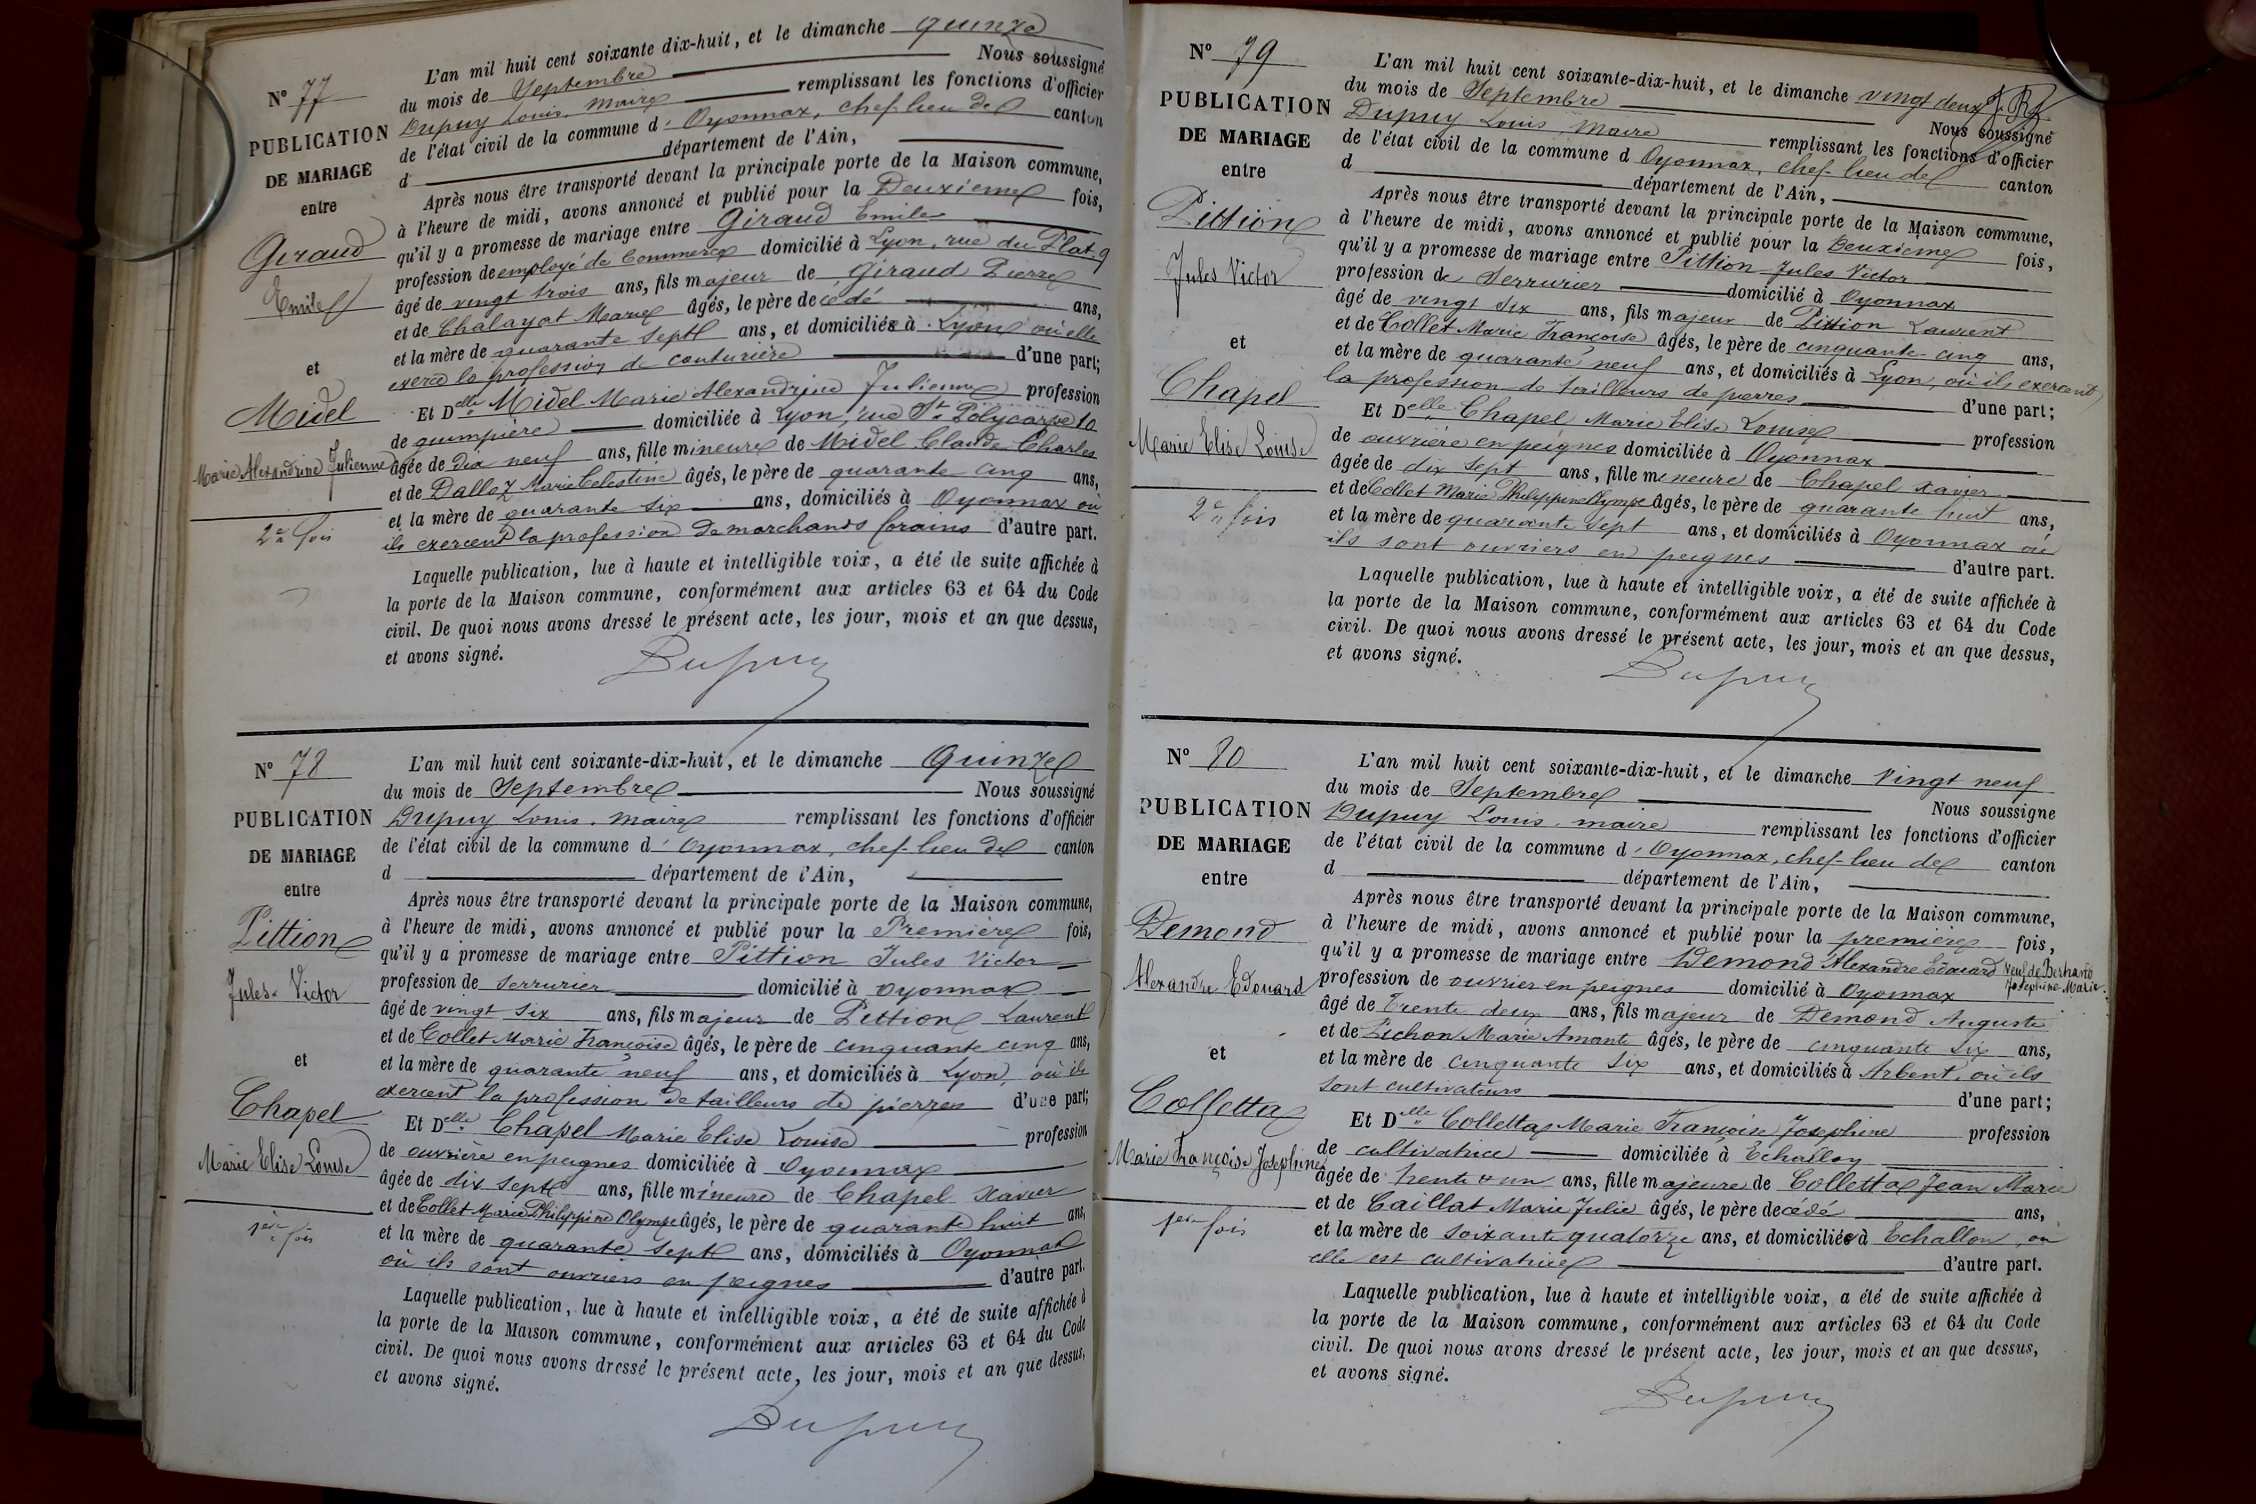 N° 77
PUBLICATION
DE MARIAGE
entre
Giraud
Emile
et
Midel
Marie Alexandrine Julienne
2e fois
L'an mil huit cent soixante dix-huit, et le dimanche quinze
du mois de Septembre Nous soussigné
Dupuy Louis, Maire remplissant les fonctions d'officier
de l'état civil de la commune d'Oyonnax, chef-lieu de canton
d département de l'Ain,
Après nous être transporté devant la principale porte de la Maison commune,
à l'heure de midi, avons annoncé et publié pour la Deuxième fois,
qu'il y a promesse de mariage entre Giraud Emile
profession de employé de Commerce domicilié à Lyon, rue du Plat, 9
âgé de vingt trois ans, fils majeur de Giraud Pierre
et de Chalayat Marie âgés, le père décédé ans,
et la mère de quarante sept ans, et domiciliée à Lyon, où elle
exerce la profession de couturière d'une part;
Et Delle Midel Marie Alexandrine Julienne profession
de guimpière domiciliée à Lyon, rue St Polycarpe 10
âgée de dix neuf ans, fille mineure de Midel Claude Charles
et de Dalloz Marie Celestine âgés, le père de quarante cinq ans,
et la mère de quarante six ans, domiciliés à Oyonnax où
ils exercent la profession de marchands forains d'autre part.
Laquelle publication, lue à haute et intelligible voix, a été de suite affichée à
la porte de la Maison commune, conformément aux articles 63 et 64 du Code
civil. De quoi nous avons dressé le présent acte, les jour, mois et an que dessus,
et avons signé.
Dupuy
N° 78
PUBLICATION
DE MARIAGE
entre
Pittion
Jules Victor
et
Chapel
Marie Elise Louise
1ère fois
L'an mil huit cent soixante-dix-huit, et le dimanche Quinze
du mois de Septembre Nous soussigné
Dupuy Louis, maire remplissant les fonctions d'officier
de l'état civil de la commune d'Oyonnax, chef-lieu de canton
d département de l'Ain,
Après nous être transporté devant la principale porte de la Maison commune,
à l'heure de midi, avons annoncé et publié pour la Première fois,
qu'il y a promesse de mariage entre Pittion Jules Victor
profession de serrurier domicilié à Oyonnax
âgé de vingt six ans, fils majeur de Pittion Laurent
et de Collet Marie Françoise âgés, le père de cinquante cinq ans,
et la mère de quarante neuf ans, et domiciliés à Lyon, où ils
exercent la profession de tailleurs de pierres d'une part;
Et Delle Chapel Marie Elise Louise profession
de ouvrière en peignes domiciliée à Oyonnax
âgée de dix sept ans, fille mineure de Chapel Xavier
et de Collet Marie Philippine Olympe âgés, le père de quarante huit ans,
et la mère de quarante sept ans, domiciliés à Oyonnax
où ils sont ouvriers en peignes d'autre part.
Laquelle publication, lue à haute et intelligible voix, a été de suite affichée à
la porte de la Maison commune, conformément aux articles 63 et 64 du Code
civil. De quoi nous avons dressé le présent acte, les jour, mois et an que dessus,
et avons signé.
Dupuy
N° 79
PUBLICATION
DE MARIAGE
entre
Pittion
Jules Victor
et
Chapel
Marie Elise Louise
2e fois
L'an mil huit cent soixante-dix-huit, et le dimanche vingt deux
du mois de Septembre Nous soussigné
Dupuy Louis, Maire remplissant les fonctions d'officier
de l'état civil de la commune d Oyonnax, chef-lieu de canton
d département de l'Ain,
Après nous être transporté devant la principale porte de la Maison commune,
à l'heure de midi, avons annoncé et publié pour la Deuxième fois,
qu'il y a promesse de mariage entre Pittion Jules Victor
profession de Serrurier domicilié à Oyonnax
âgé de vingt six ans, fils majeur de Pittion Laurent
et de Collet Marie Françoise âgés, le père de cinquante cinq ans,
et la mère de quarante neuf ans, et domiciliés à Lyon, où ils exercent
la profession de tailleurs de pierres d'une part;
Et Delle Chapel Marie Elise Louise profession
de ouvrière en peignes domiciliée à Oyonnax
âgée de dix sept ans, fille mineure de Chapel Xavier
et de Collet Marie Philippine Olympe âgés, le père de quarante huit ans,
et la mère de quarante sept ans, et domiciliés à Oyonnax où
ils sont ouvriers en peignes d'autre part.
Laquelle publication, lue à haute et intelligible voix, a été de suite affichée à
la porte de la Maison commune, conformément aux articles 63 et 64 du Code
civil. De quoi nous avons dressé le présent acte, les jour, mois et an que dessus,
et avons signé.
Dupuy
N° 80
PUBLICATION
DE MARIAGE
entre
Demond
Alexandre Edouard
et
Colletta
Marie Françoise Josephine
1ere fois
L'an mil huit cent soixante-dix-huit, et le dimanche vingt neuf
du mois de Septembre Nous soussigné
Dupuy Louis, maire remplissant les fonctions d'officier
de l'état civil de la commune d'Oyonnax, chef-lieu de canton
d département de l'Ain,
Après nous être transporté devant la principale porte de la Maison commune,
à l'heure de midi, avons annoncé et publié pour la première fois,
qu'il y a promesse de mariage entre Demond Alexandre Edouard veuf de Berthand Josephine Marie
profession de ouvrier en peignes domicilié à Oyonnax
âgé de trente deux ans, fils majeur de Demond Auguste
et de Pichon Marie Amante âgés, le père de cinquante six ans,
et la mère de cinquante six ans, et domiciliés à Arbent, où ils
sont cultivateurs d'une part;
Et Delle Colletta Marie Françoise Josephine profession
de cultivatrice domiciliée à Echallon
âgée de trente et un ans, fille majeure de Colletta Jean Marie
et de Caillat Marie Julie âgés, le père décédé ans,
et la mère de soixante quatorze ans, et domiciliée à Echallon, où
elle est cultivatrice d'autre part.
Laquelle publication, lue à haute et intelligible voix, a été de suite affichée à
la porte de la Maison commune, conformément aux articles 63 et 64 du Code
civil. De quoi nous avons dressé le présent acte, les jour, mois et an que dessus,
et avons signé.
Dupuy